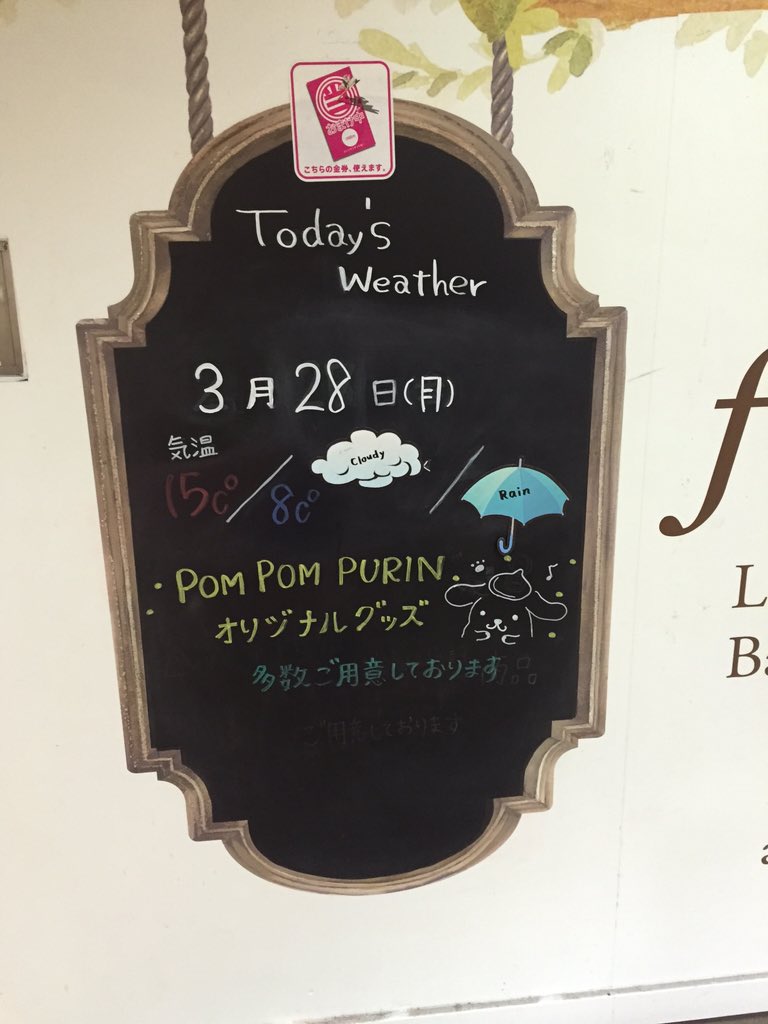 おまけ中
こちらの金券、使えます。
Today's
Weather
3月28日(月)
気温
15c°/8c° Cloudy / Rain
POM POM PURIN
オリジナルグッズ
多数ご用意しております
ご用意しております
f
L
Ba
a